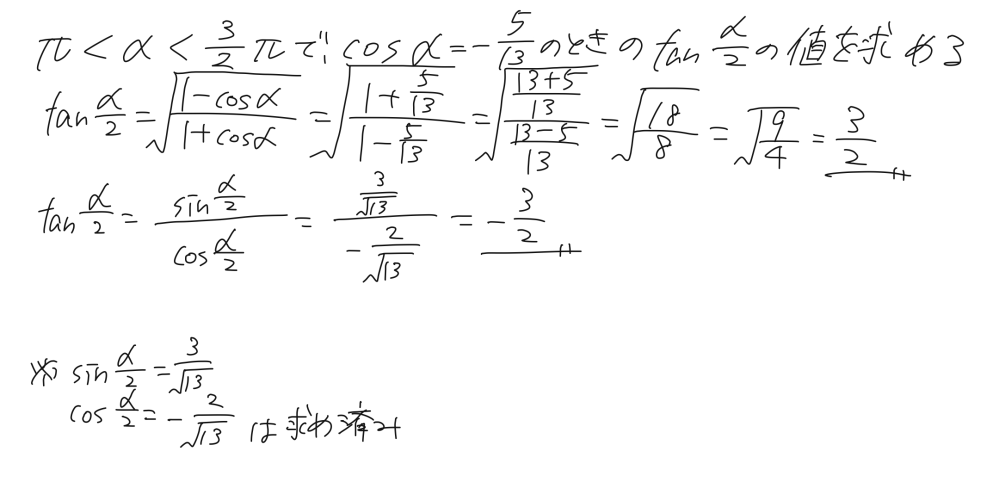 π < α < 3/2 π で cos α = -5/13 のときの tan α/2 の値を求める
tan α/2 = √((1-cosα)/(1+cosα)) = √((1+5/13)/(1-5/13)) = √(((13+5)/13)/((13-5)/13)) = √(18/8) = √(9/4) = 3/2
tan α/2 = (sin α/2)/(cos α/2) = (3/√13)/(-2/√13) = -3/2
※ sin α/2 = 3/√13
cos α/2 = -2/√13 は求め済み